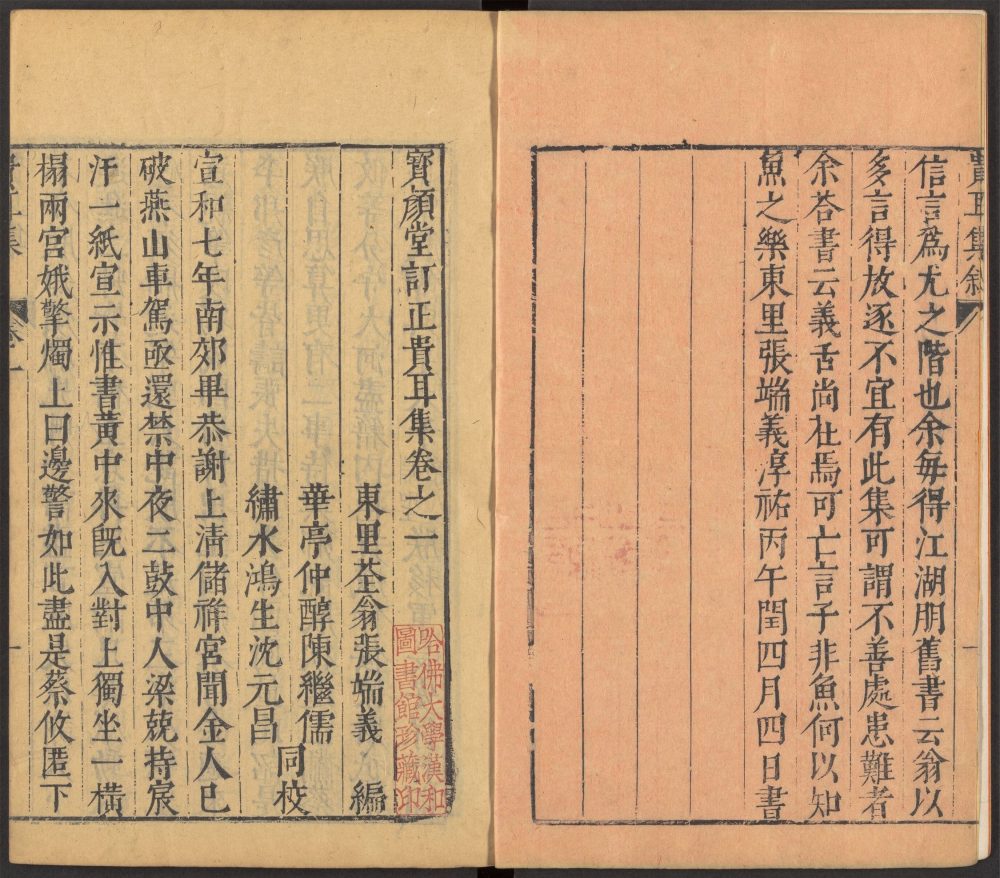 貴耳集敘
信言爲尤之階也余每得江湖朋舊書云翁以
多言得放逐不宜有此集可謂不善處患難者
余荅書云義舌尚在焉可亡言子非魚何以知
魚之樂東里張端義淳祐丙午閏四月四日書
一
寳顏堂訂正貴耳集卷之一
東里荃翁張端義 編
華亭仲醇陳繼儒
繡水鴻生沈元昌 同校
宣和七年南郊畢恭謝上清儲祥宮聞金人已
破燕山車駕亟還禁中夜二鼓中人梁兢持宸
汗一紙宣示惟書黄中來旣入對上獨坐一橫
榻兩宮娥擎燭上曰邊警如此盡是蔡攸匿下
貴耳集
卷一
一
哈佛大學漢和
圖書館珍藏印